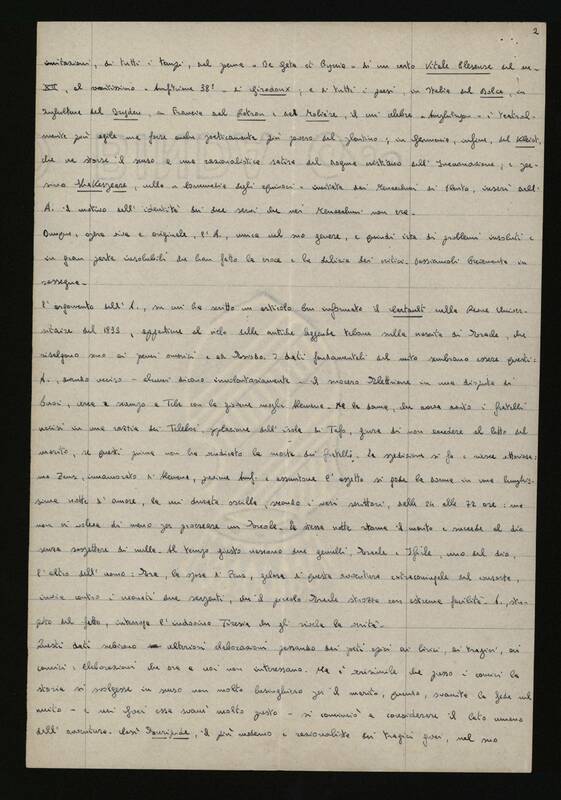 2
imitazioni, di tutti i tempi, dal poema "De Geta et Byrria" di un certo Vitale Blesense del sec.
XII, al recentissimo "Amphitrion 38" di Giradoux; e di tutti i paesi, in Italia del Dolce, in
Inghilterra del Dryden, in Francia del Rotrou e del Molière, il cui celebre "Amphitryon" è teatral-
mente più agile ma forse anche poeticamente più povero del plautino; in Germania, infine, del Kleist,
che ne storse il senso a una razionalistica satira del dogma cristiano dell'Incarnazione; e per-
sino Shakespeare, nella "Commedia degli equivoci" imitata dai Menaechmi di Plauto, inserì dall'
A. il motivo dell'identità dei due servi che nei Menaechmi non era.
Dunque, opera viva e originale, l'A., unica nel suo genere, e quindi irta di problemi insoluti e
in gran parte insolubili che han fatto la croce e la delizia dei critici. Passiamoli brevemente in
rassegna.
L'argomento dell'A., su cui ha scritto un articolo ben informato il Bertault nella Revue Univer-
sitaire del 1933, appartiene al ciclo delle antiche leggende tebane sulla nascita di Eracle, che
risalgono sino ai poemi omerici e ad Esiodo. I dati fondamentali del mito sembrano essere questi:
A., avendo ucciso - alcuni dicono involontariamente - il suocero Elettrione in una disputa di
buoi, cerca scampo a Tebe con la giovane moglie Alcmena. Ma la donna, che aveva avuto i fratelli
uccisi in una razzia dei Teleboi, popolazione dell'isola di Tafo, giura di non accedere al letto del
marito, se questi prima non ha vendicato la morte dei fratelli. La spedizione si fa e riesce vittoriosa:
ma Zeus, innamorato di Alcmena, previene Anf. e assuntone l'aspetto si gode la donna in una lunghis-
sima notte d'amore, la cui durata oscilla, secondo i vari scrittori, dalle 24 alle 72 ore: ma
non ci voleva di meno per procreare un Eracle. La stessa notte torna il marito e succede al dio
senza sospettare di nulla. Al tempo giusto nascono due gemelli, Eracle e Ificle, uno del dio,
l'altro dell'uomo: Era, la sposa di Zeus, gelosa di questa avventura extraconiugale del consorte,
invia contro i neonati due serpenti, che il piccolo Eracle strozza con estrema facilità. A., stu-
pito del fatto, interroga l'indovino Tiresia che gli svela la verità.
Questi dati subirono ulteriori elaborazioni passando dai poeti epici ai lirici, ai tragici, ai
comici: elaborazioni che ora a noi non interessano. Ma è verisimile che presso i comici la
storia si svolgesse in senso non molto lusinghiero per il marito, quando, svanita la fede nel
mito - e nei Greci essa svanì molto presto - si cominciò a considerare il lato umano
dell'avventura. Così Euripide, il più moderno e razionalista dei tragici greci, nel suo